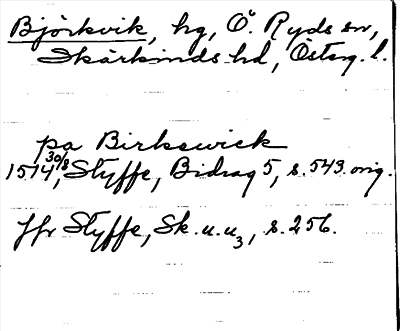 Björkvik, hg, Ö. Ryds sn,
Skärkinds hd, Östergl.
pa Birkewick
1514 30/8, Styffe, Bidrag 5, s. 543. orig.
Jfr Styffe, Sk. u. u3, s. 256.